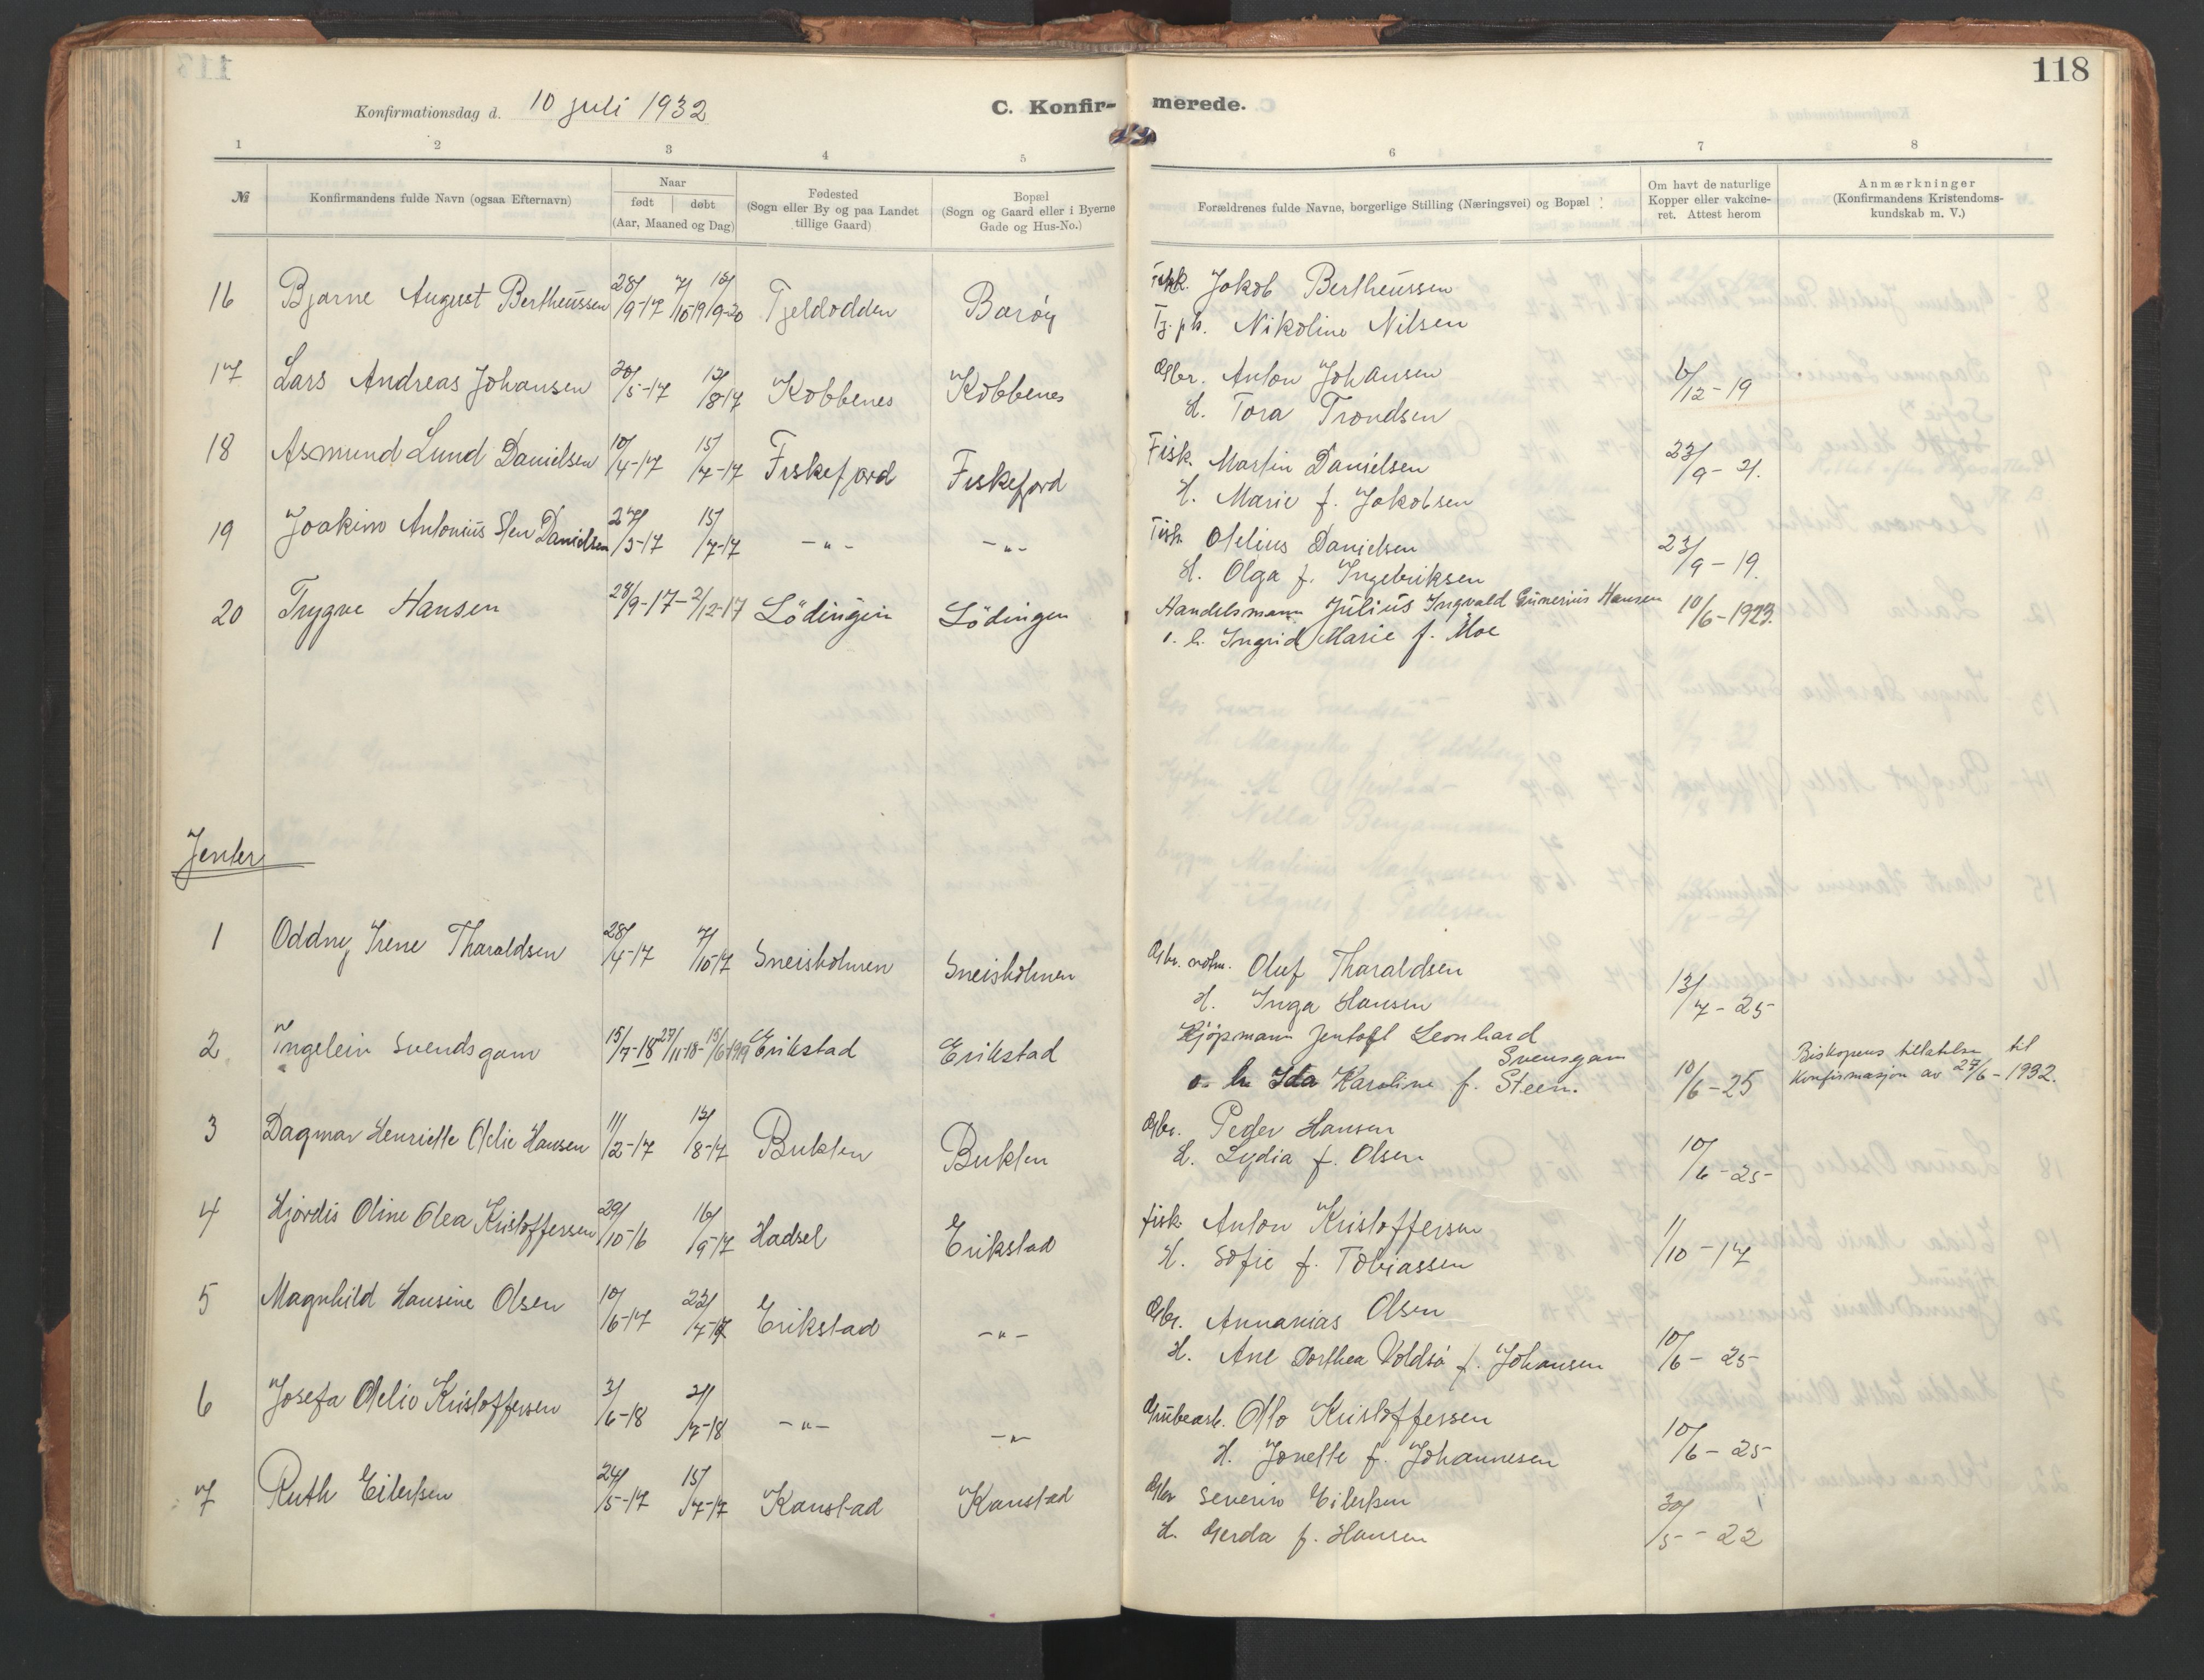 118
Konfirmationsdag d. 10 juli 1932
C. Konfir- merede.
1 2 3 4 5 6 7 8
№
Konfirmandens fulde Navn (ogsaa Efternavn)
Naar
født døbt
(Aar, Maaned og Dag)
Fødested
(Sogn eller By og paa Landet
tillige Gaard)
Bopæl
(Sogn og Gaard eller i Byerne
Gade og Hus-No.)
Forældrenes fulde Navne, borgerlige Stilling (Næringsvei) og Bopæl
Om havt de naturlige
Kopper eller vakcine-
ret. Attest herom
Anmærkninger
(Konfirmandens Kristendoms-
kundskab m. V.)
16 Bjarne August Bertheussen 28/9-17 7/10-19 12/9-20 Tjeldodden Barøy
Fisk. Jakob Bertheussen
Tj. pk. Nikoline Nilsen
17 Lars Andreas Johansen 20/5-17 12/8-17 Kobbenes Kobbenes
Gbr. Anton Johansen 6/12-19
H. Tora Trondsen
18 Asmund Lund Danielsen 10/4-17 15/7-17 Fiskefjord Fiskefjord
Fisk. Martin Danielsen 23/9-21.
H. Marie f. Jakobsen
19 Joakim Antonius Sten Danielsen 27/3-17 15/7-17 -"- -"-
Fisk. Otelius Danielsen 23/9-19.
H. Olga f. Ingebriksen
20 Trygve Hansen 28/9-17 - 2/12-17 Lödingen Lödingen
Handelsmann Julius Ingvald Gunerius Hansen 10/6-1923.
o. h. Ingrid Marie f. Moe
Jenter
1 Oddny Irene Tharaldsen 28/4-17 7/10-17 Sneisholmen Sneisholmen
Gbr. Oluf Tharaldsen
H. Inga Hansen 13/7-25
2 Ingelein Svendsgam 15/7-18 27/11-18 - 15/6-1919 Erikstad Erikstad
Kjøpmann Jentoft Leonhard
Svensgam
o. h. Ida Karoline f. Steen. 10/6-25
Biskopens tillatelse til
Konfirmasjon av 27/6-1932.
3 Dagmar Henriette Otelie Hansen 11/2-17 12/8-17 Bukten Bukten
Gbr. Peder Hansen
H. Lydia f. Olsen 10/6-25
4 Hjørdis Oline Olea Kristoffersen 29/10-16 16/9-17 Hadsel Erikstad
fisk. Anton Kristoffersen
H. Sofie f. Tobiassen 1/10-17
5 Magnhild Hansine Olsen 10/6-17 22/7-17 Erikstad -"-
Gbr. Annanias Olsen
H. Ane Dorthea Voldsö f. Johansen 10/6-25
6 Josefa Otelie Kristoffersen 3/6-18 21/7-18 -"- -"-
Grubearb. Otto Kristoffersen
H. Jonette f. Johannesen 10/6-25
7 Ruth Eilertsen 24/5-17 15/7-17 Kanstad Kanstad
Gbr Severin Eilertsen
H. Gerda f. Hansen 30/5-22